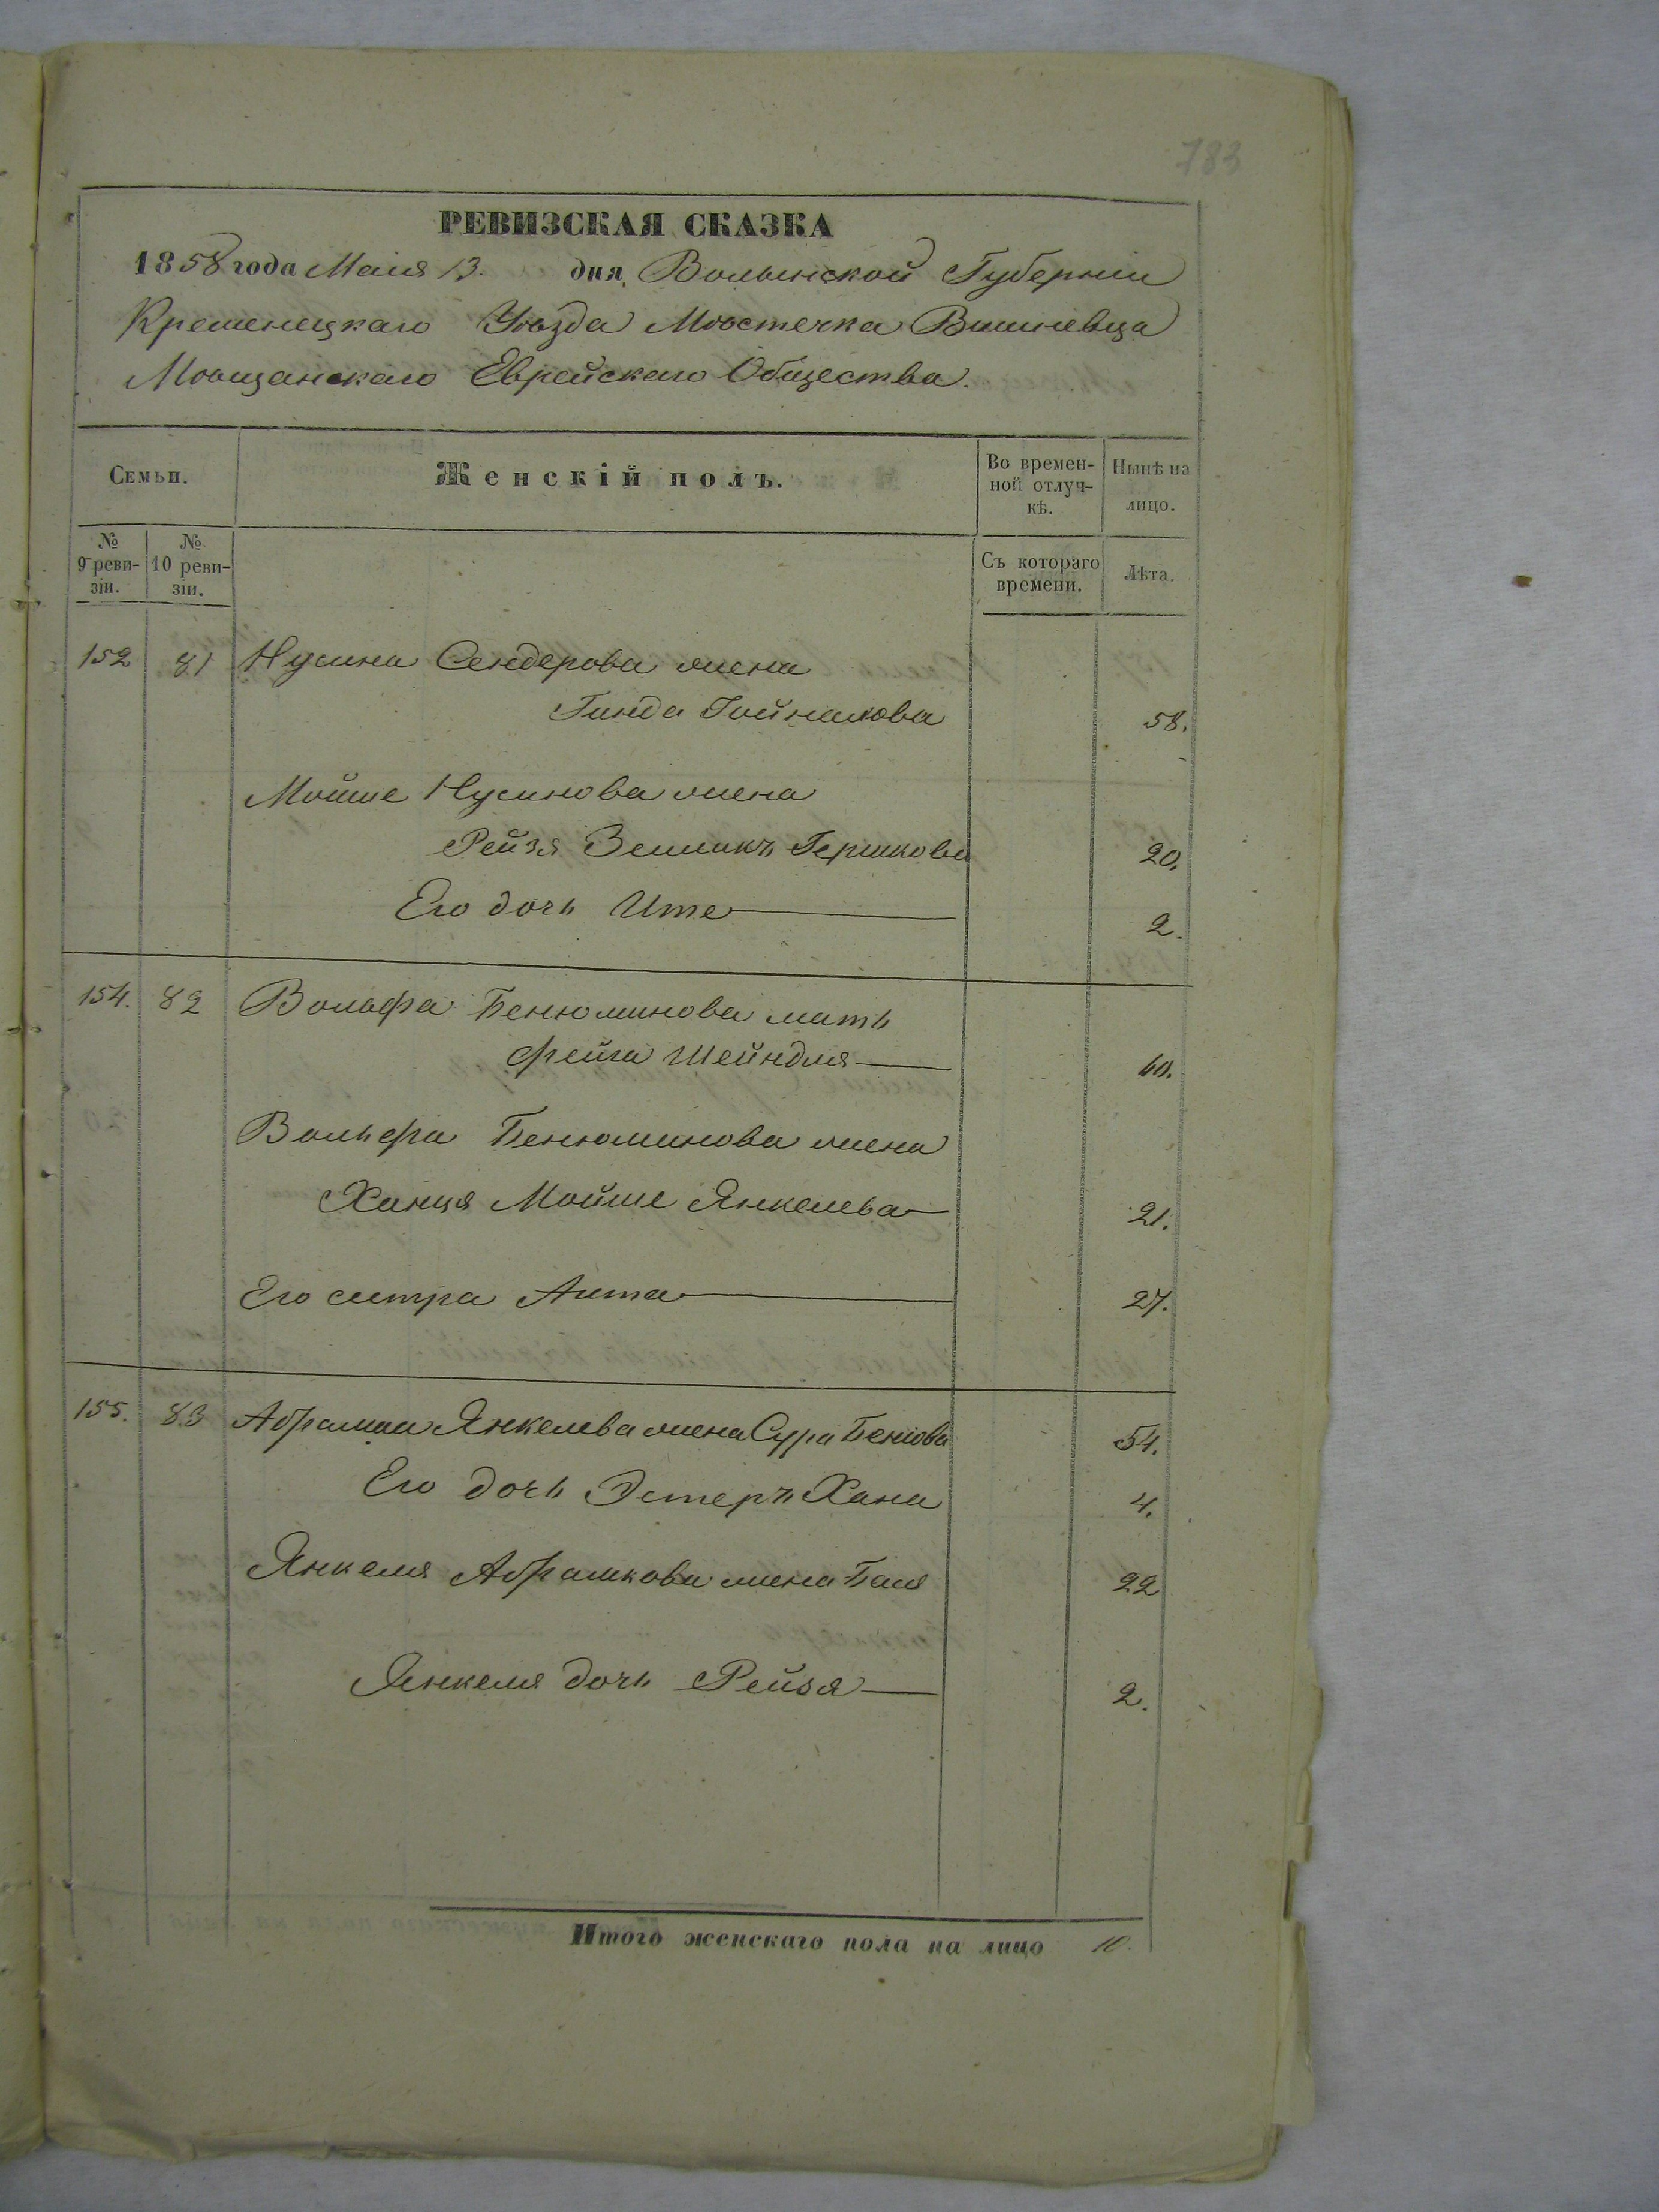 783
РЕВИЗСКАЯ СКАЗКА
1858 года Маия 13. дня, Волынской Губерніи
Кременецкаго Уѣзда Мѣстечка Вишневца
Мѣщанскаго Еврейскаго Общества.
Семьи.
Женскій полъ.
Во времен-
ной отлуч-
кѣ.
Нынѣ на
лицо.
№
9 реви-
зіи.
№
10 реви-
зіи.
Съ котораго
времени.
Лѣта.
152 81 Нусина Сендерова жена
Гинда 58.
Мойше Нусинова жена
Рейзя Зелликъ Гершкова 20.
Его дочь Ите 2.
154. 82 Вольфа Бенюминова мать
Фейга Шейндля 60.
Вольфа Бенюминова жена
Ханця Мойше Янкелева 21.
Его сестра 27.
155. 83 Абрамка Янкелева жена Сура 54.
Его дочь Эстеръ Хана 4.
Янкеля Абрамкова жена Бася 22
Янкеля дочь Рейзя 2.
Итого женскаго пола на лицо 10.